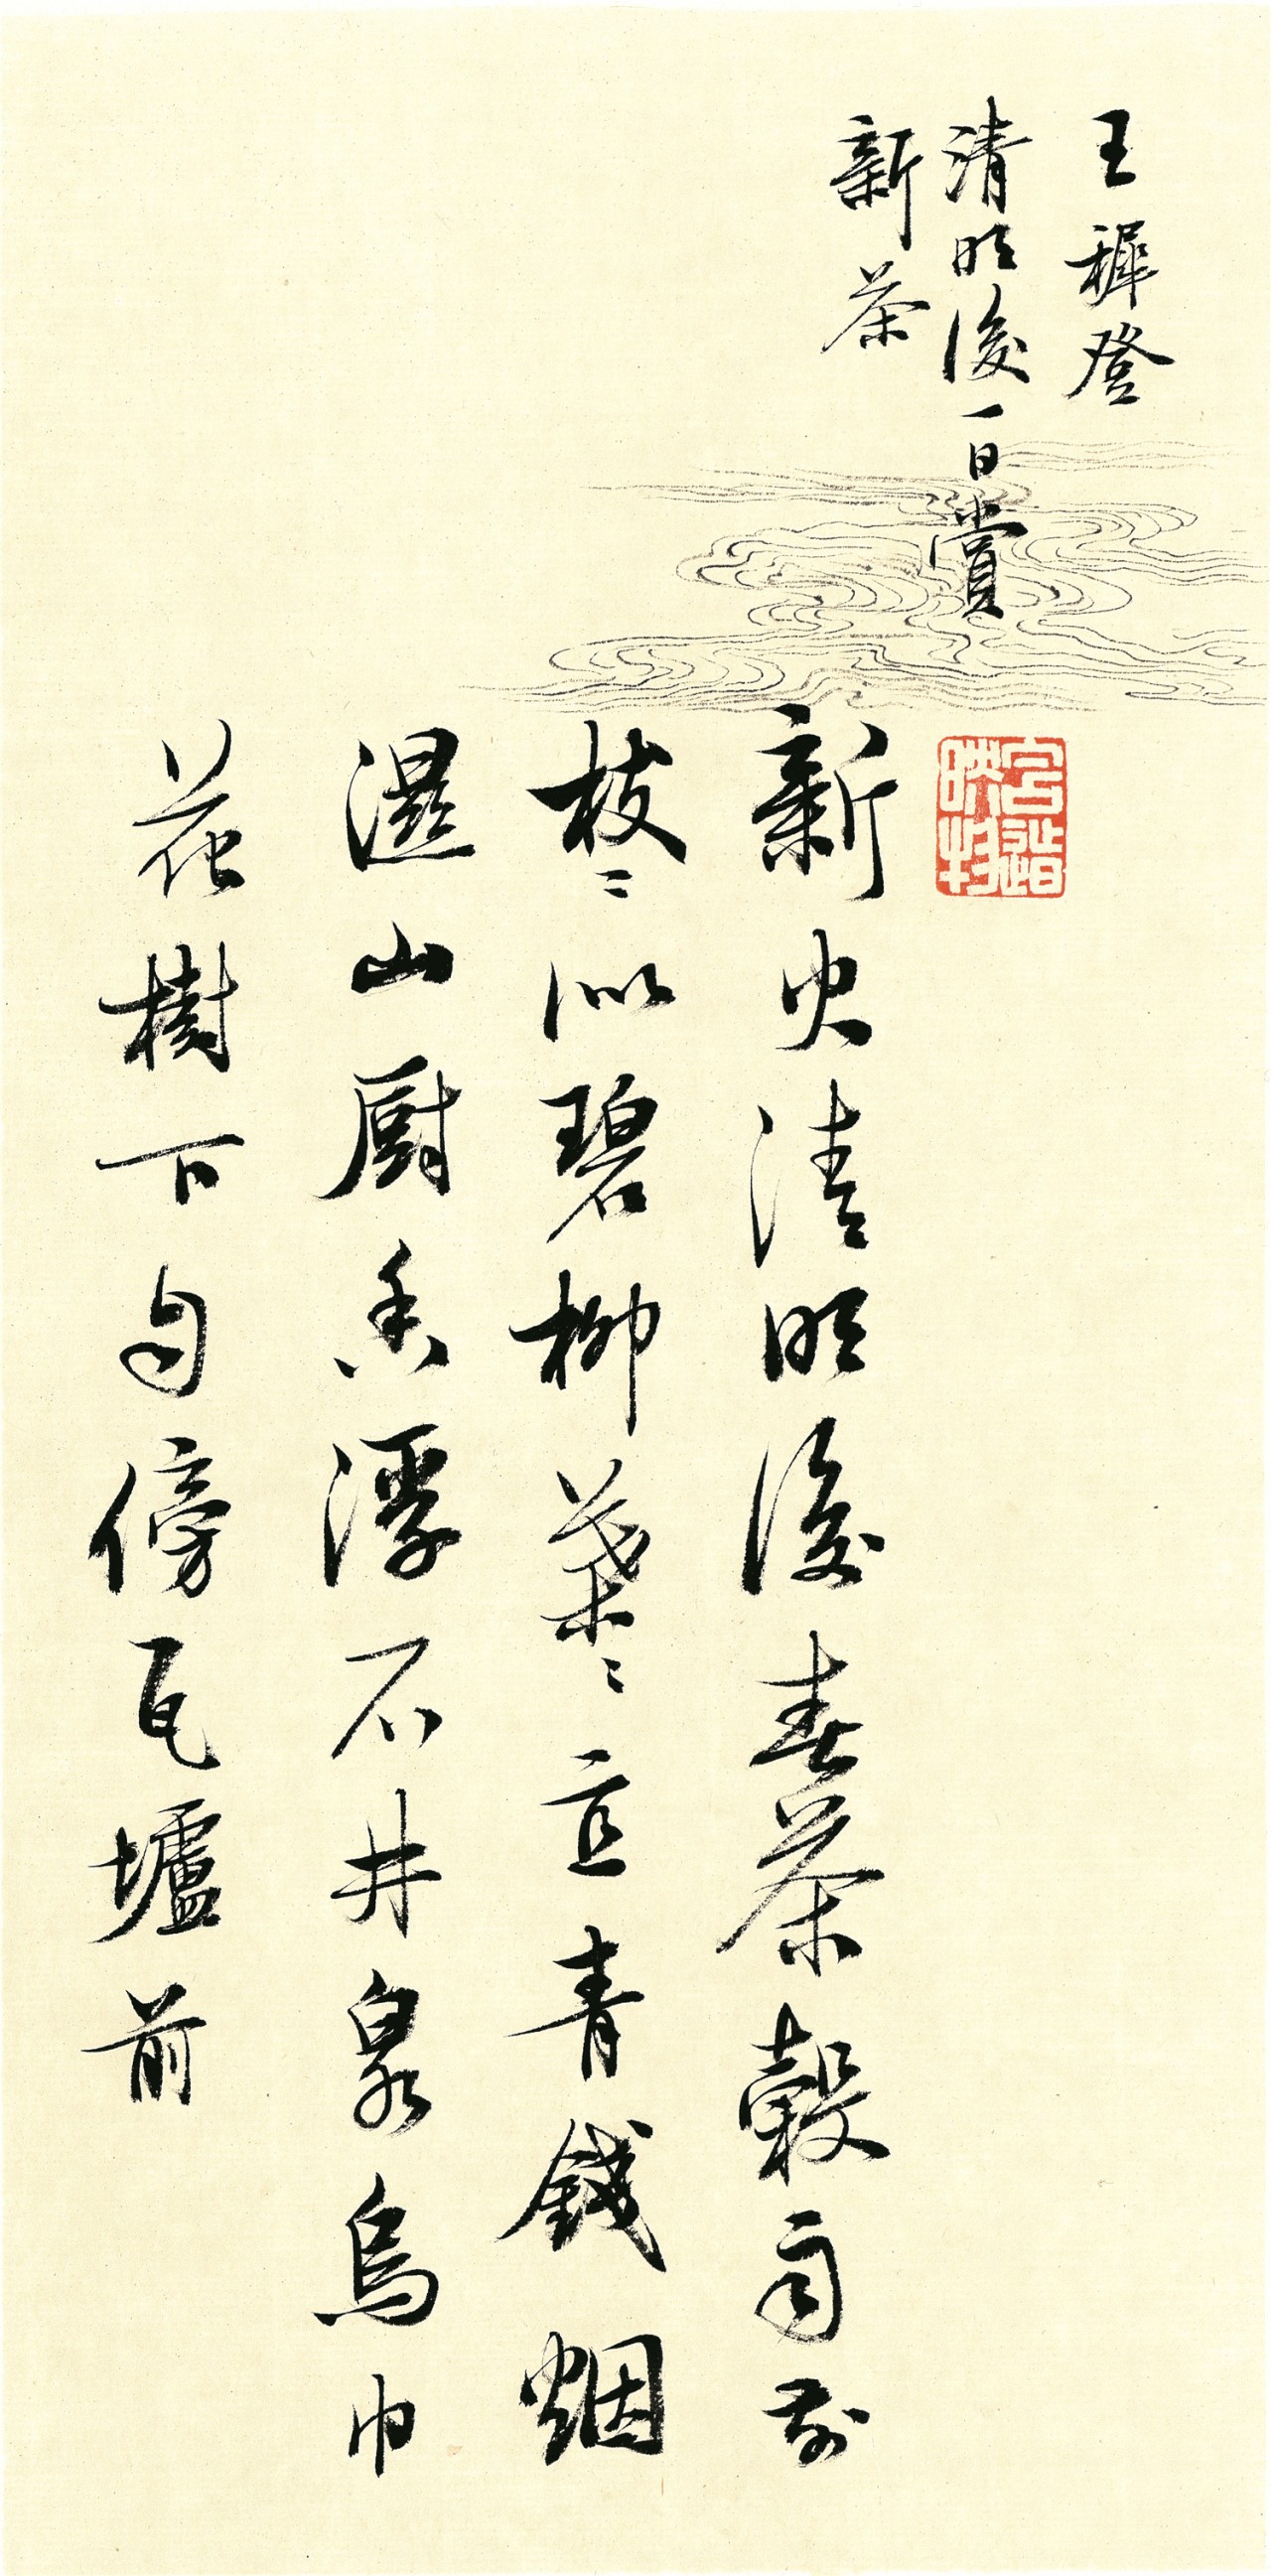 王穉登
清明後一日賞
新茶
新火清明後春茶穀雨前
枝〻似碧柳葉〻直青錢烟
濕山厨香浮石井泉烏巾
花樹下自傍瓦壚前